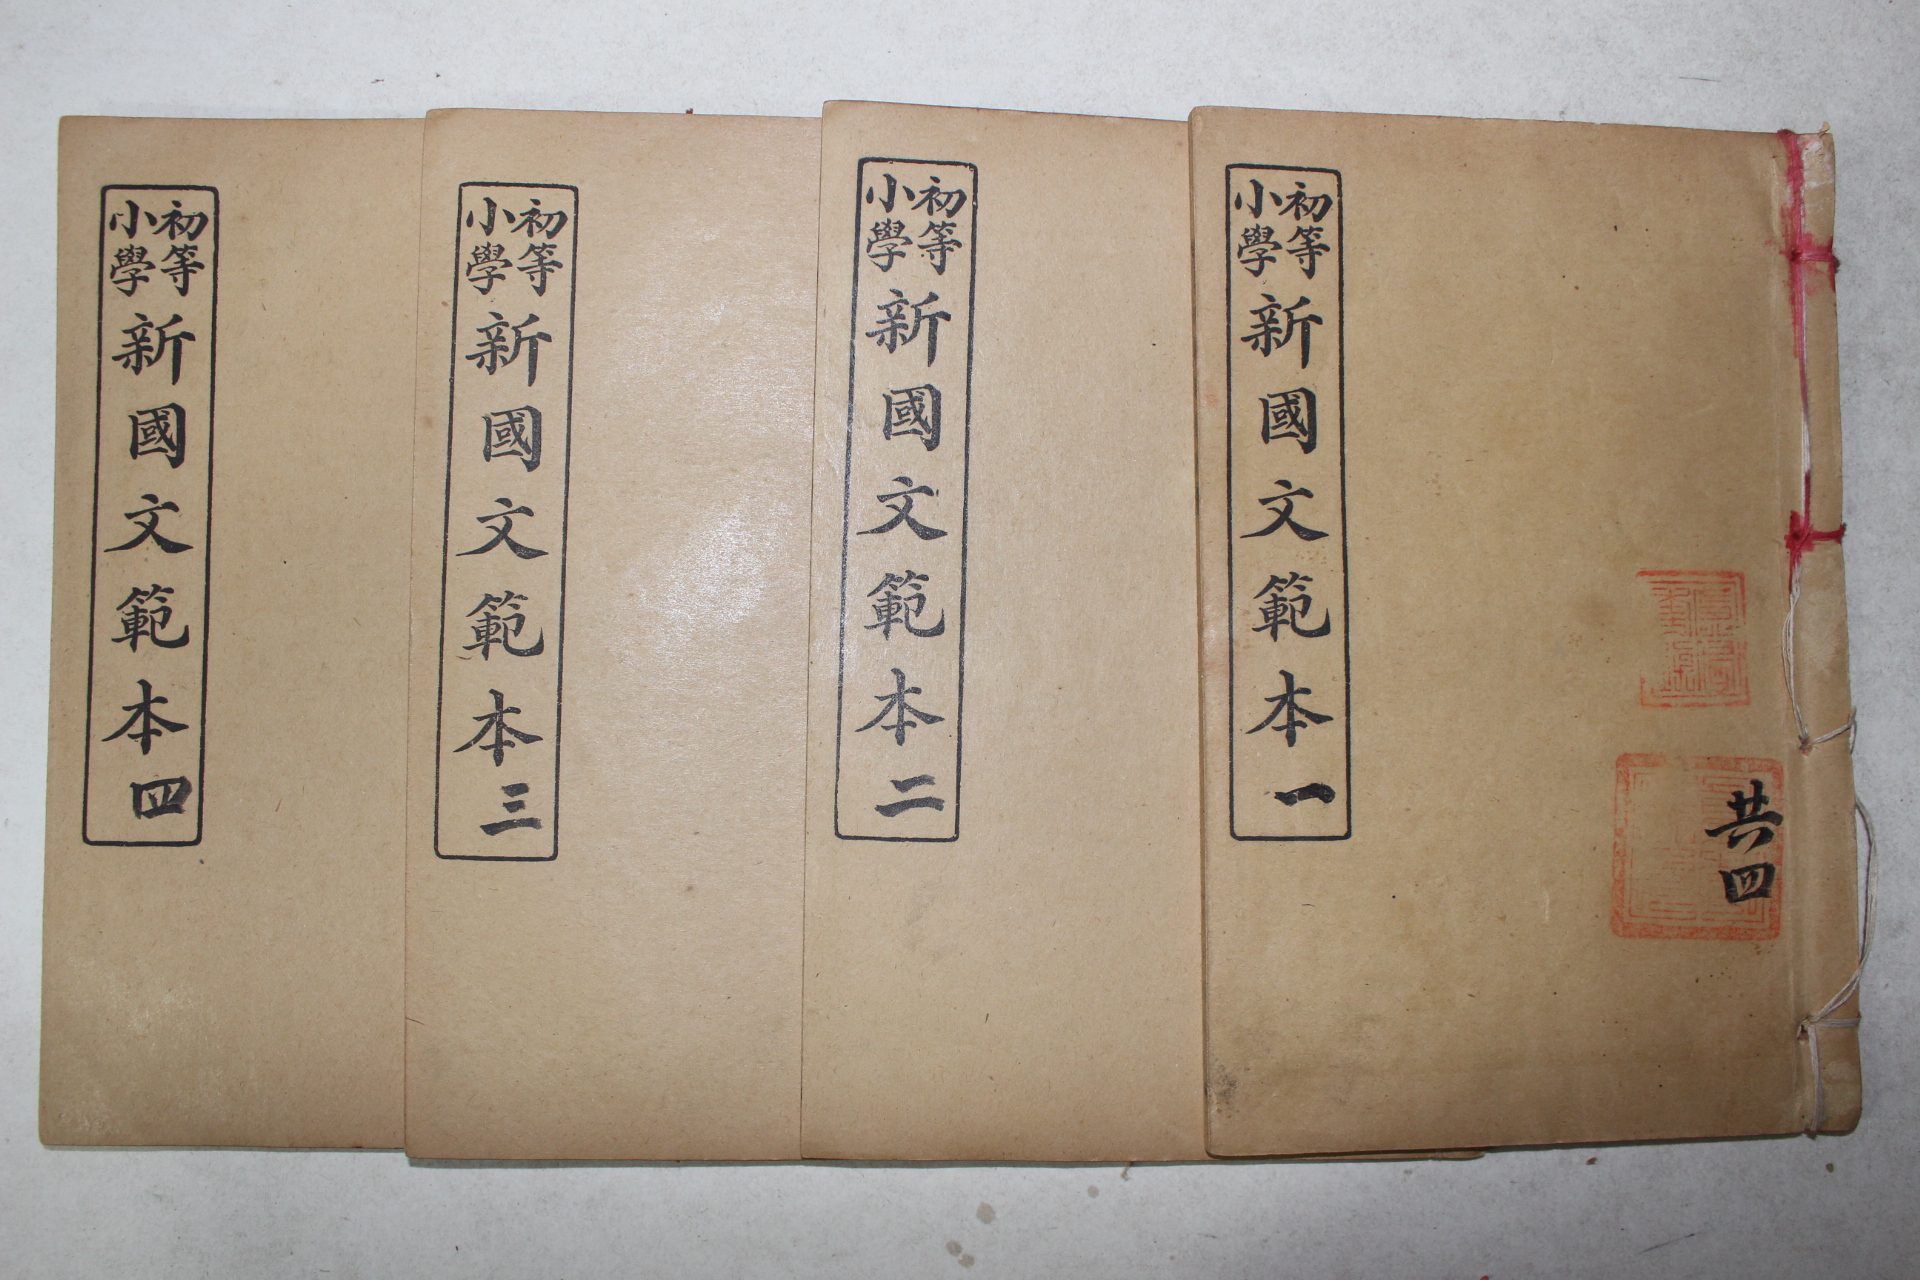 初等小學新國文範本一
共四
初等小學新國文範本二
初等小學新國文範本三
初等小學新國文範本四